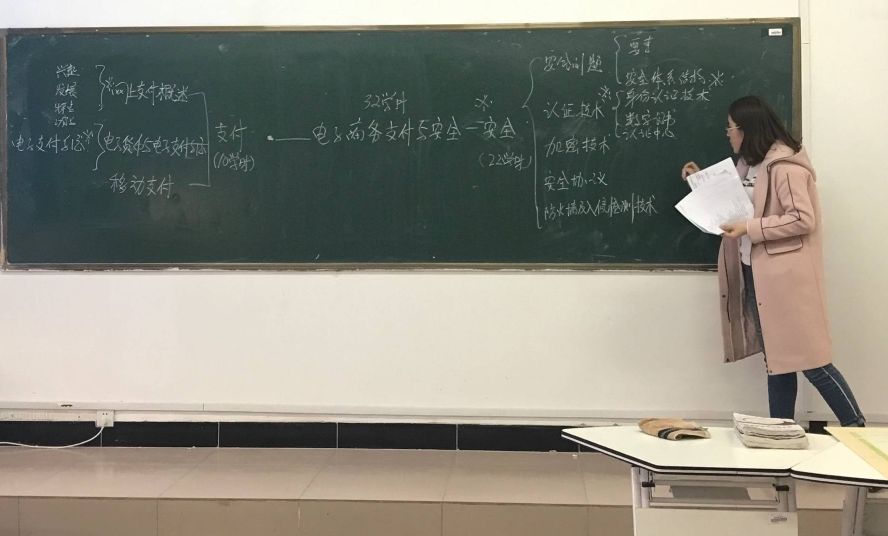 兴起
发展
特点
电子支付与
※网上支付概述
电子货币与电子支付
移动支付
支付
(10学时)
32学时
电子商务支付与安全
※
安全
(22学时)
安全问题
要素
安全体系结构 ※
※
认证技术
身份认证技术
数字证书
认证中心
加密技术
安全协议
防火墙及入侵检测技术